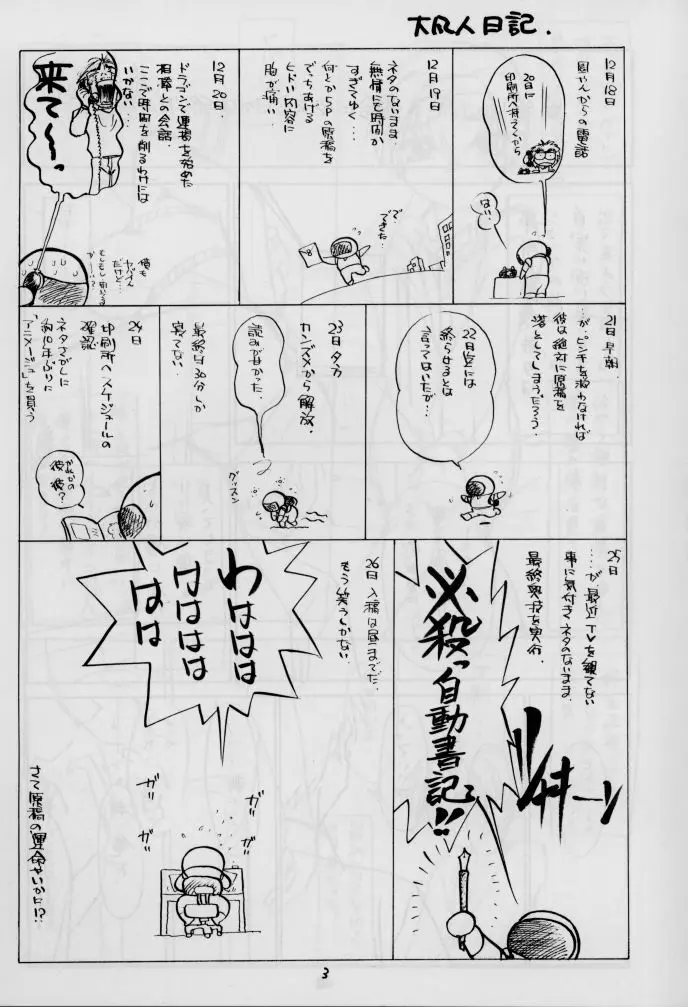 大凡人日記.
12月18日
周やんからの電話
20日に
印刷所へ持ってくから
はい.
12月19日
ネタのないまま
無情にも時間が
すぎてゆく…
何とか5Pの原稿を
でっちあげる
ヒドい内容に
胸が痛い
で.
できた…
12月20日.
ドラゴンで連載を始めた
相棒との会話.
ここで時間を削るわけには
いかない…
来て〜っ
俺も
ヤバイん
だけど…
21日 早朝
…が、ピンキを救わなければ
彼は絶対に原稿を
落としてしまうだろう.
22日までには
終らせるとは
言ってはいたが…
23日 夕方
カンヅメから解放.
最終は30分しか
寝てない
読みが甘かった.
グッスン
24日
印刷所へスケジュールの
確認
ネタさがしに
約10年ぶりに
「アニメージュ」を買う
彼彼?
25日
……が、最近TVを観てない
事に気付きネタのないまま
最終奥技を実行.
必殺っ自動書記!!
26日 入稿は昼までだ.
もう笑うしかない
わははは
はははは
はは
ガ"
ガ"
ガ"
ガ"
さて原稿の運命やいかに!?
3